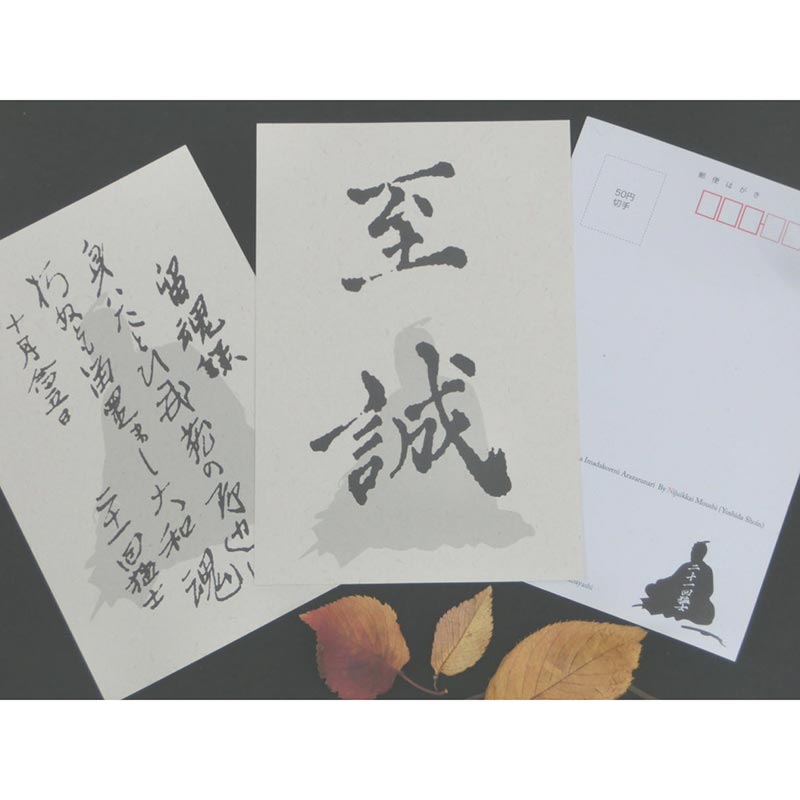 留魂録
身ハたとひ武蔵の野辺に
朽ぬとも留置まし大和魂
十月念五日
二十一回猛士
至誠
郵便はがき
50円
切手
By Nijuikkai Moushi (Yoshida Shoin)
二十一回猛士